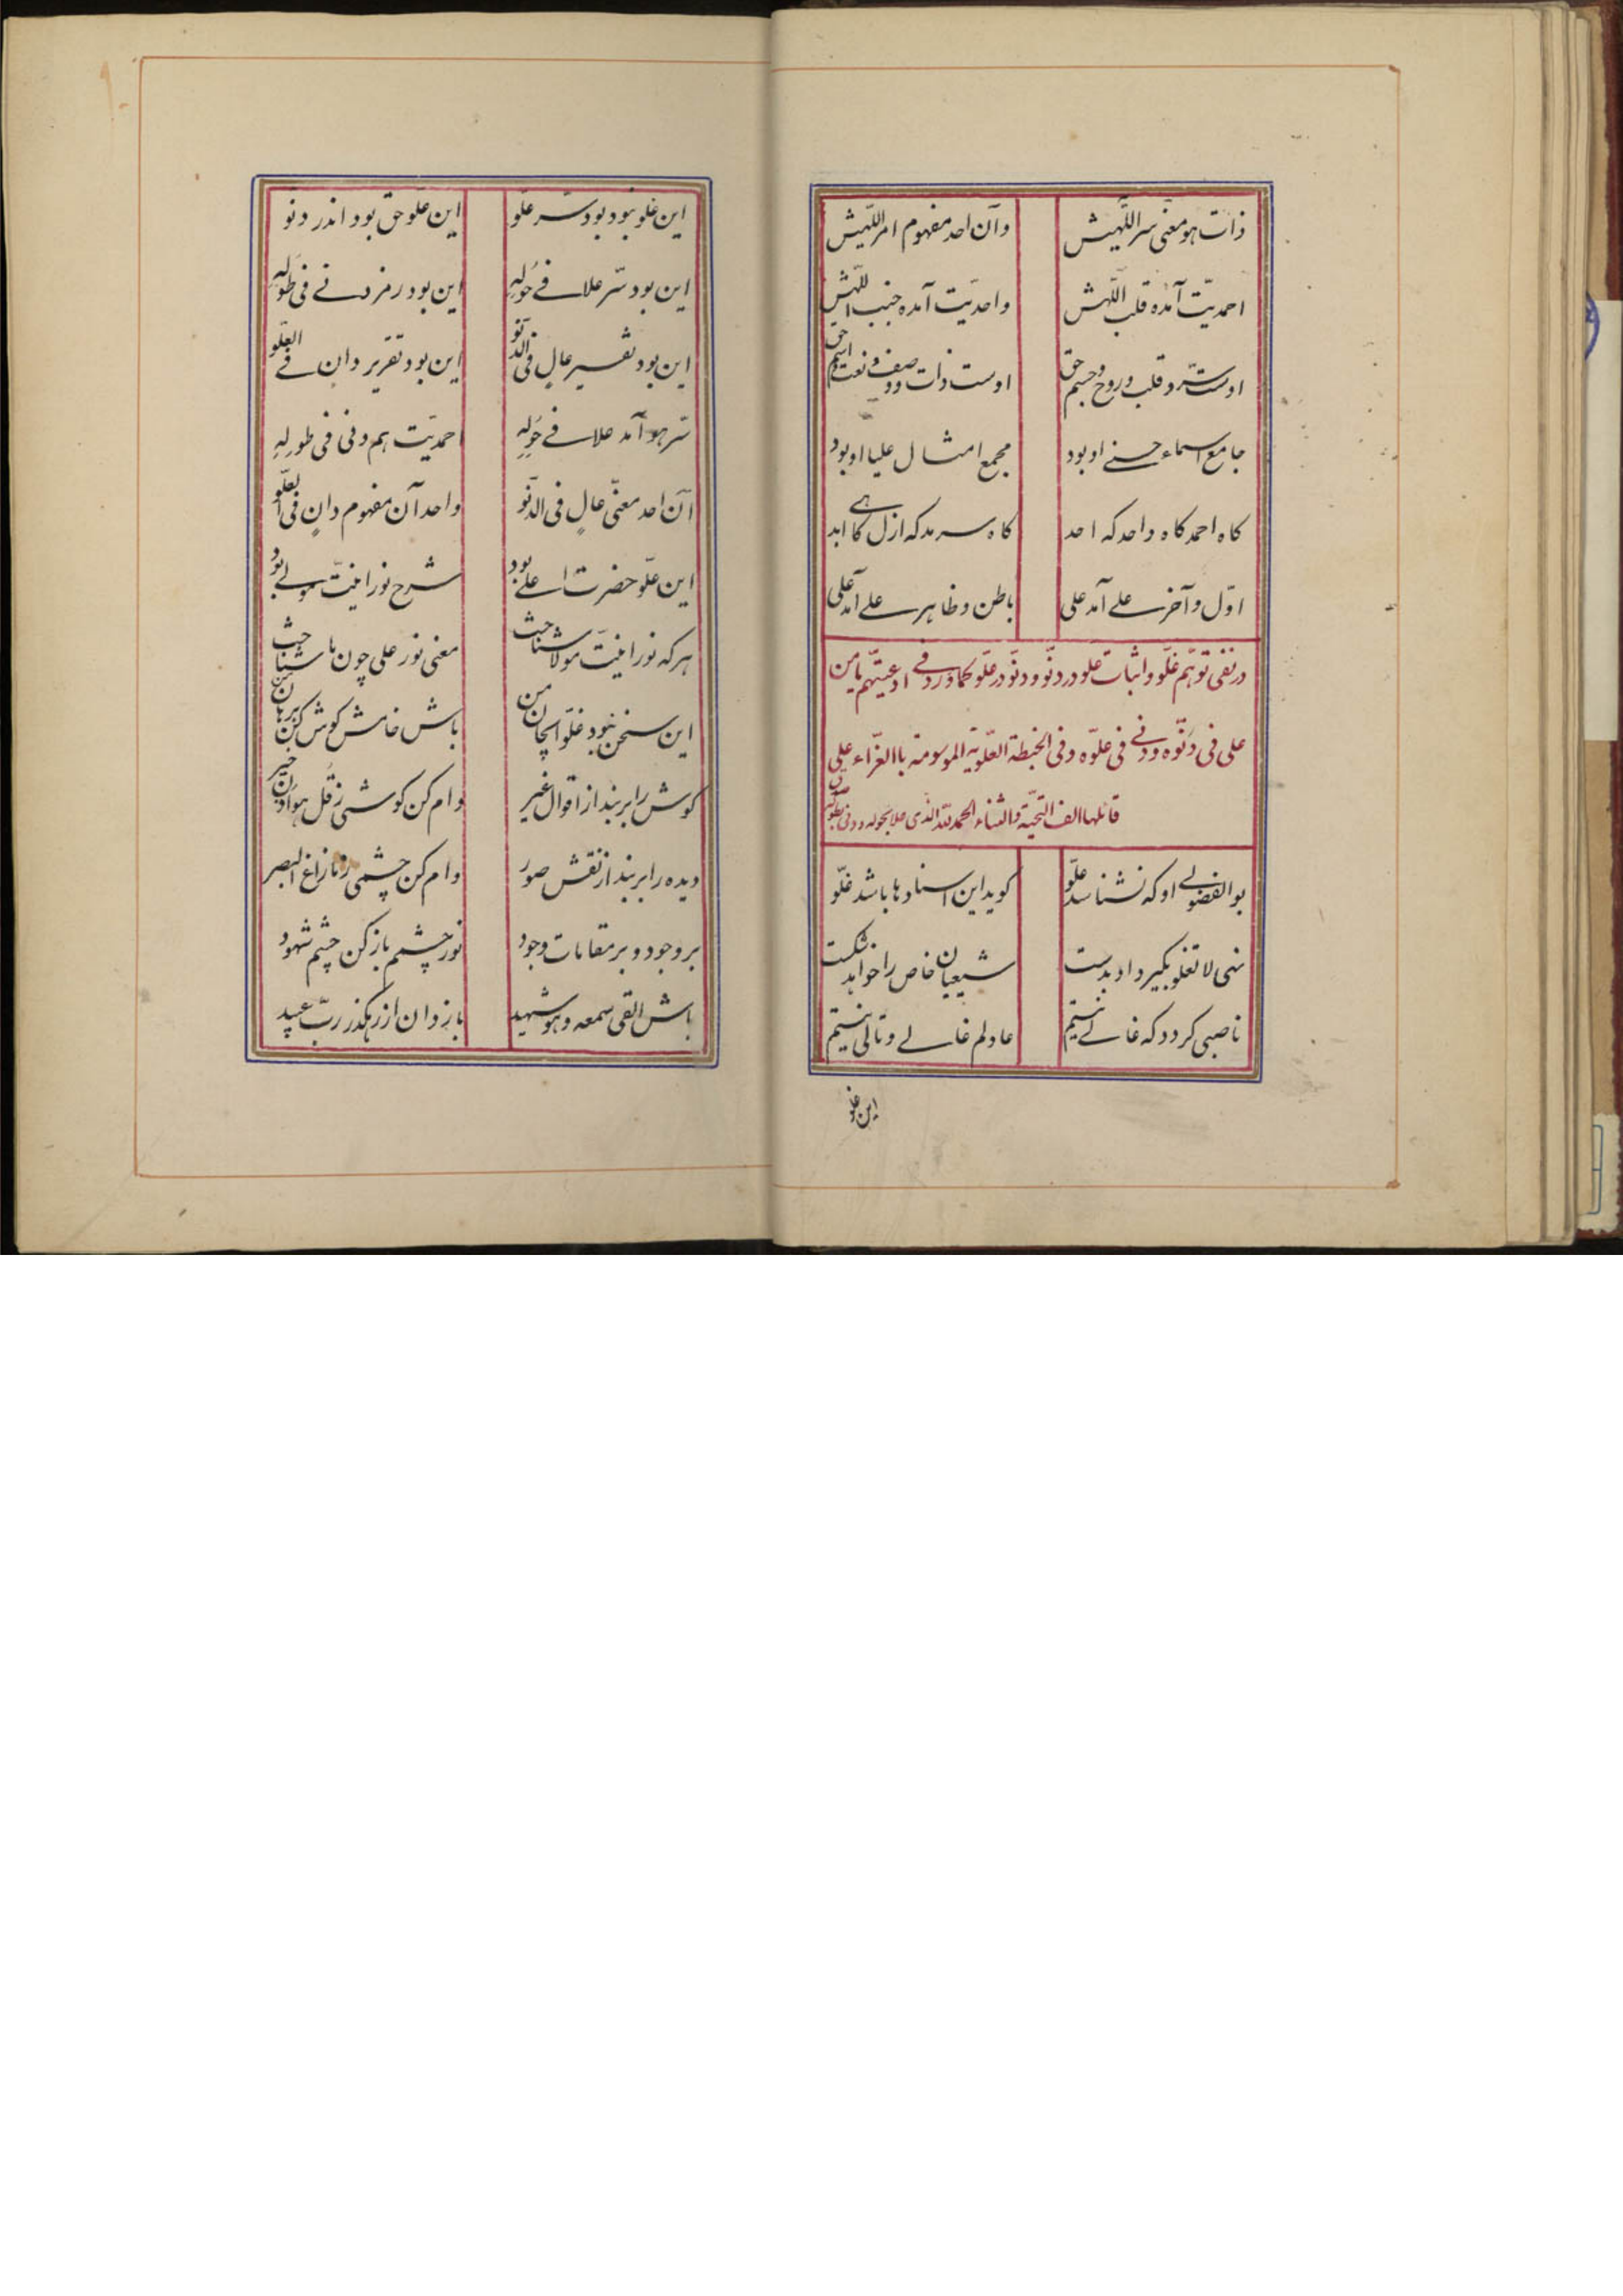 ذات هو معنی سر اللهیش وآن احد مفهوم امر اللهیش
احمدیّت آمده قلب اللّهش واحدیّت آمده جنب اللّهش
اوست سرّ و قلب و روح و جسم حق اوست ذات و وصف و نعت و اسم حق
جامع اسماء حسنے او بود مجمع امثال علیا او بود
کاه احمد کاه واحد که احد کاه سرمد که ازل کاهے ابد
اوّل و آخر علے آمد علی باطن و ظاهر علے آمد علی
در نفی توهّم غلّو و اثبات علّو در دنّو و دنّو در علّو کما ورد فے ادعیتهم یا من
علی فی دنّوه و دنے فی علّوه و فی الخبطة العلّویة الموسومة باالغرّاء علی
قائلها الف التحیّة والثناء الحمد للّه الذی علا بحوله و دنی بطوله
بوالفضولے او که نشناسد علّو کوید این اسنادها باشد غلّو
نهی لا تغلو بکیرد او بدست شیعیان خاص را خواهد شکست
ناصبی کردد که غالے نیستم عادلم غالے و تالی نیستم
این غلو
این غلو نبود بود سرّ علّو این علّو حق بود اندر دنّو
این بود سّر علا فے حَوله این بود رمز دنے فی طَوله
این بود تفسیر عالٍ فی الدنّو این بود تقریر دانٍ فے العلّو
سّر هو آمد علا فے حَولِهِ احمدیّت هم دنی فی طَولِهِ
آن احد معنّی عالٍ فی الدنّو واحد آن مفهوم دانٍ فی العلّو
این علّو حضرت اعلے بود شرح نورانیّت مولے بود
هر که نورانیّت مولا شناخت معنی نور علی چون ما شناخت
این سخن نبود غلّو ایجان من باش خامش کوش کن برهان من
کوش را بر بند از اقوال غیر وام کن کوشی ز قل هو اُذن خیر
دیده را بر بند از نقش صور وام کن چشمی ز ما زاغ البصر
بر وجود و بر مقامات وجود نور چشم باز کن چشم شهود
باش القی سمعه و هو شهید باز دان از رهکذر ربّ عبید